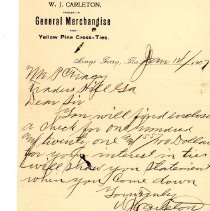 W. J. CARLETON,
DEALER IN
General Merchandise
AND
Yellow Pine Cross-Ties.
Kings Ferry, Fla, June 1st/1907
Mr P
Ga
Dear Sir
You will find enclosed
a check for one hundred
twenty one /100 Dollars
for your interest in
I will show you Statement
when you come down
Yours truly
W J Carleton